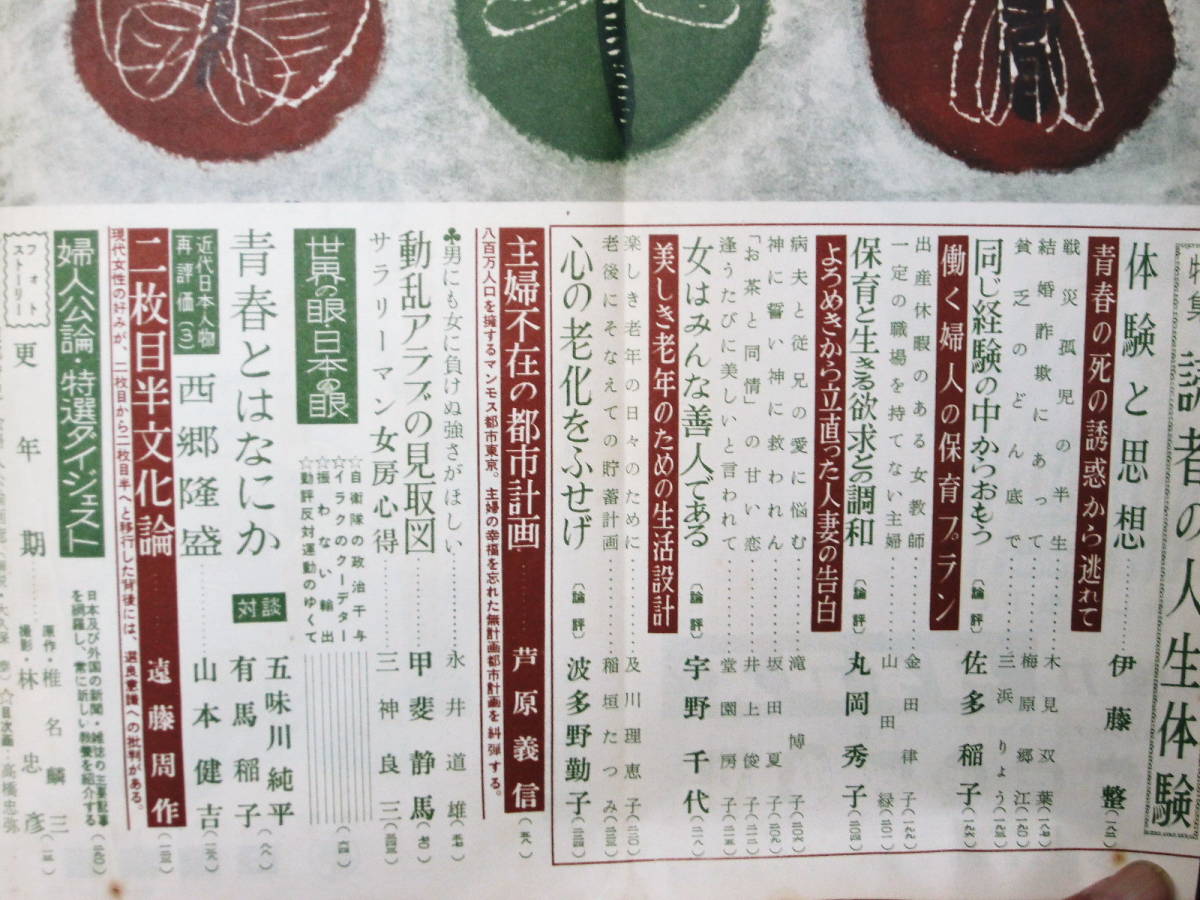 読者の人生体験
体験と思想……伊藤整
青春の死の誘惑から逃れて
戦災孤児の半生……木見双葉
結婚詐欺にあって……梅原郷江
貧乏のどん底で……三浜りょう
同じ経験の中からおもう〔論評〕佐多稲子
働く婦人の保育プラン
出産休暇のある女教師……金田律子
一定の職場を持てない主婦……山田緑
保育と生きる欲求との調和〔論評〕丸岡秀子
よろめきから立直った人妻の告白
病夫と従兄の愛に悩む……滝博子
神に誓い神に救われん……坂田夏子
「お茶と同情」の甘い恋……井上俊子
逢うたびに美しいと言われて……堂園房子
女はみんな善人である〔論評〕宇野千代
美しき老年のための生活設計
楽しき老年の日々のために……及川理恵子
老後にそなえての貯蓄計画……稲垣たつみ
心の老化をふせげ〔論評〕波多野勤子
主婦不在の都市計画……芦原義信
八百万人口を擁するマンモス都市東京。主婦の幸福を忘れた無計画都市計画を糾弾する。
♣男にも女に負けぬ強さがほしい……永井道雄
動乱アラブの見取図……甲斐静馬
サラリーマン女房心得……三神良三
世界の眼・日本の眼
☆自衛隊の政治干与
☆イラクのクーデター
☆振わない輸出
☆勤評反対運動のゆくて
青春とはなにか 対談 五味川純平 有馬稲子
近代日本人物再評価(3) 西郷隆盛……山本健吉
二枚目半文化論……遠藤周作
現代女性の好みが、二枚目から二枚目半へと移行した背後には、選良意識への批判がある。
婦人公論・特選ダイジェスト
日本及び外国の新聞・雑誌の主要記事を網羅し、常に新しい教養を紹介する
フォトストーリー 更年期 原作・椎名麟三 撮影・林忠彦
☆目次画・高橋忠弥